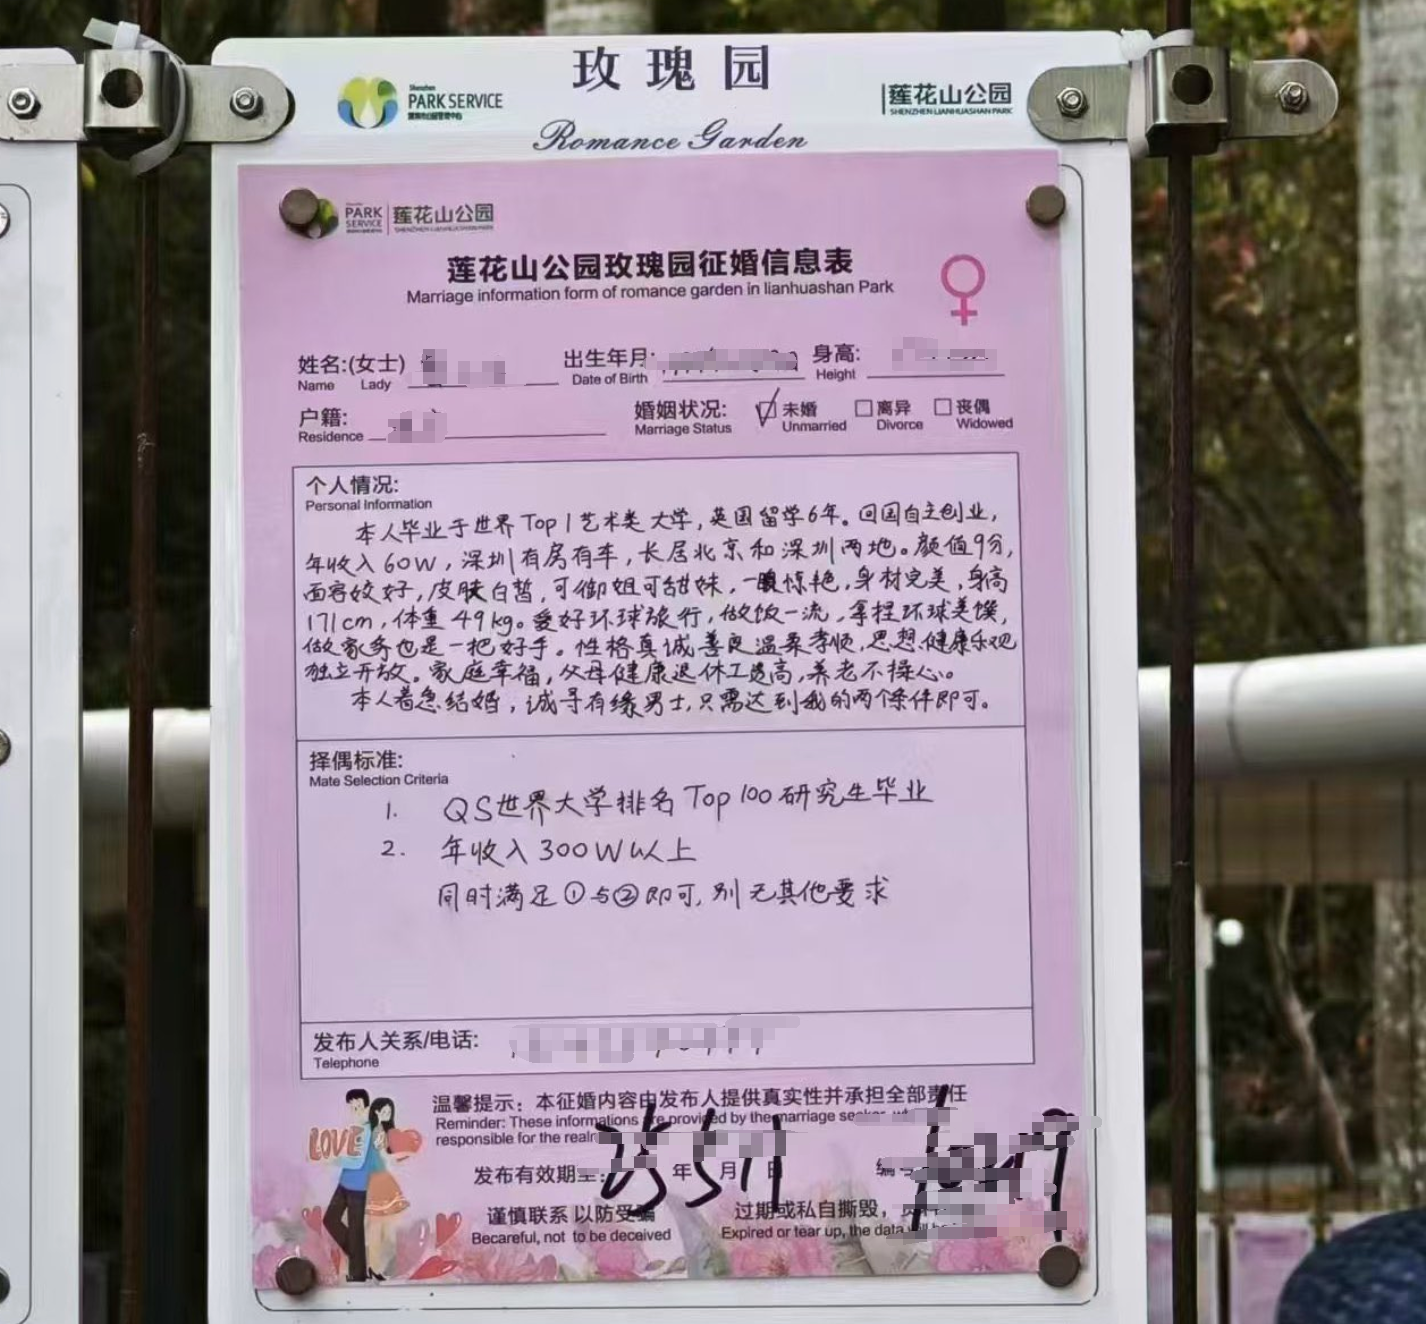 玫瑰园
Shenzhen
PARK SERVICE
深圳市公园管理中心
Romance Garden
莲花山公园
SHENZHEN LIANHUASHAN PARK
PARK
SERVICE
莲花山公园
SHENZHEN LIANHUASHAN PARK
莲花山公园玫瑰园征婚信息表
Marriage information form of romance garden in lianhuashan Park
姓名:(女士) 出生年月: 身高:
Name Lady Date of Birth Height
户籍: 婚姻状况: 未婚 离异 丧偶
Residence Marriage Status Unmarried Divorce Widowed
个人情况:
Personal Information
本人毕业于世界Top1艺术类大学,英国留学6年。回国自主创业,
年收入60W,深圳有房有车,长居北京和深圳两地。颜值9分,
面容姣好,皮肤白皙,可御姐可甜妹,一眼惊艳,身材完美,身高
171cm,体重49kg。爱好环球旅行,做饭一流,拿捏环球美馔,
做家务也是一把好手。性格真诚善良温柔孝顺,思想健康乐观
独立开放。家庭幸福,父母健康退休工资高,养老不操心。
本人着急结婚,诚寻有缘男士,只需达到我的两个条件即可。
择偶标准:
Mate Selection Criteria
1. QS世界大学排名Top100研究生毕业
2. 年收入300W以上
同时满足①与②即可,别无其他要求
发布人关系/电话:
Telephone
LOVE
温馨提示：本征婚内容由发布人提供真实性并承担全部责任
Reminder: These informations are provided by the marriage
responsible for the
发布有效期至: 年 月 日
谨慎联系 以防受骗 过期或私自撕毁，
Becareful, not to be deceived Expired or tear up, the data